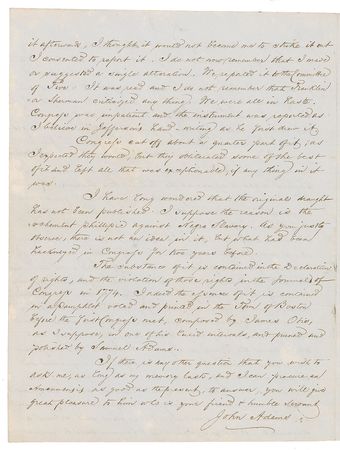 it afterwards, I thought it would not become me to strike it out
I consented to report it. I do not now remember that I made
or suggested a single alteration. We reported it to the Committee
of Five. It was read and I do not remember that Franklin
or Sherman criticized any thing. We were all in haste.
Congress was impatient and the instrument was reported as
I believe in Jefferson's hand-writing as he first drew it.
Congress cut off about a quarter part of it, as
I expected they would, but they obliterated some of the best
of it and left all that was exceptionable, if any thing in it
was.
I have long wondered that the original draught
has not been published. I suppose the reason is the
vehement phillipic against Negro Slavery. As you justly
observe, there is not an idea in it, but what had been
hackneyed in Congress for two years before.
The substance of it is contained in the Declaration
of rights, and the violation of those rights in the Journals of
Congress in 1774. Indeed the essence of it is contained
in a pamphlet voted and printed in the Town of Boston
before the first Congress met, composed by James Otis,
as I suppose, in one of his lucid intervals, and pruned and
polished by Samuel Adams.
If there is any other question that you wish to
ask me, as long as my memory lasts, and I can procure an
Amanuensis as good as the present, to answer, you will give
great pleasure to him who is your friend & humble servant
John Adams